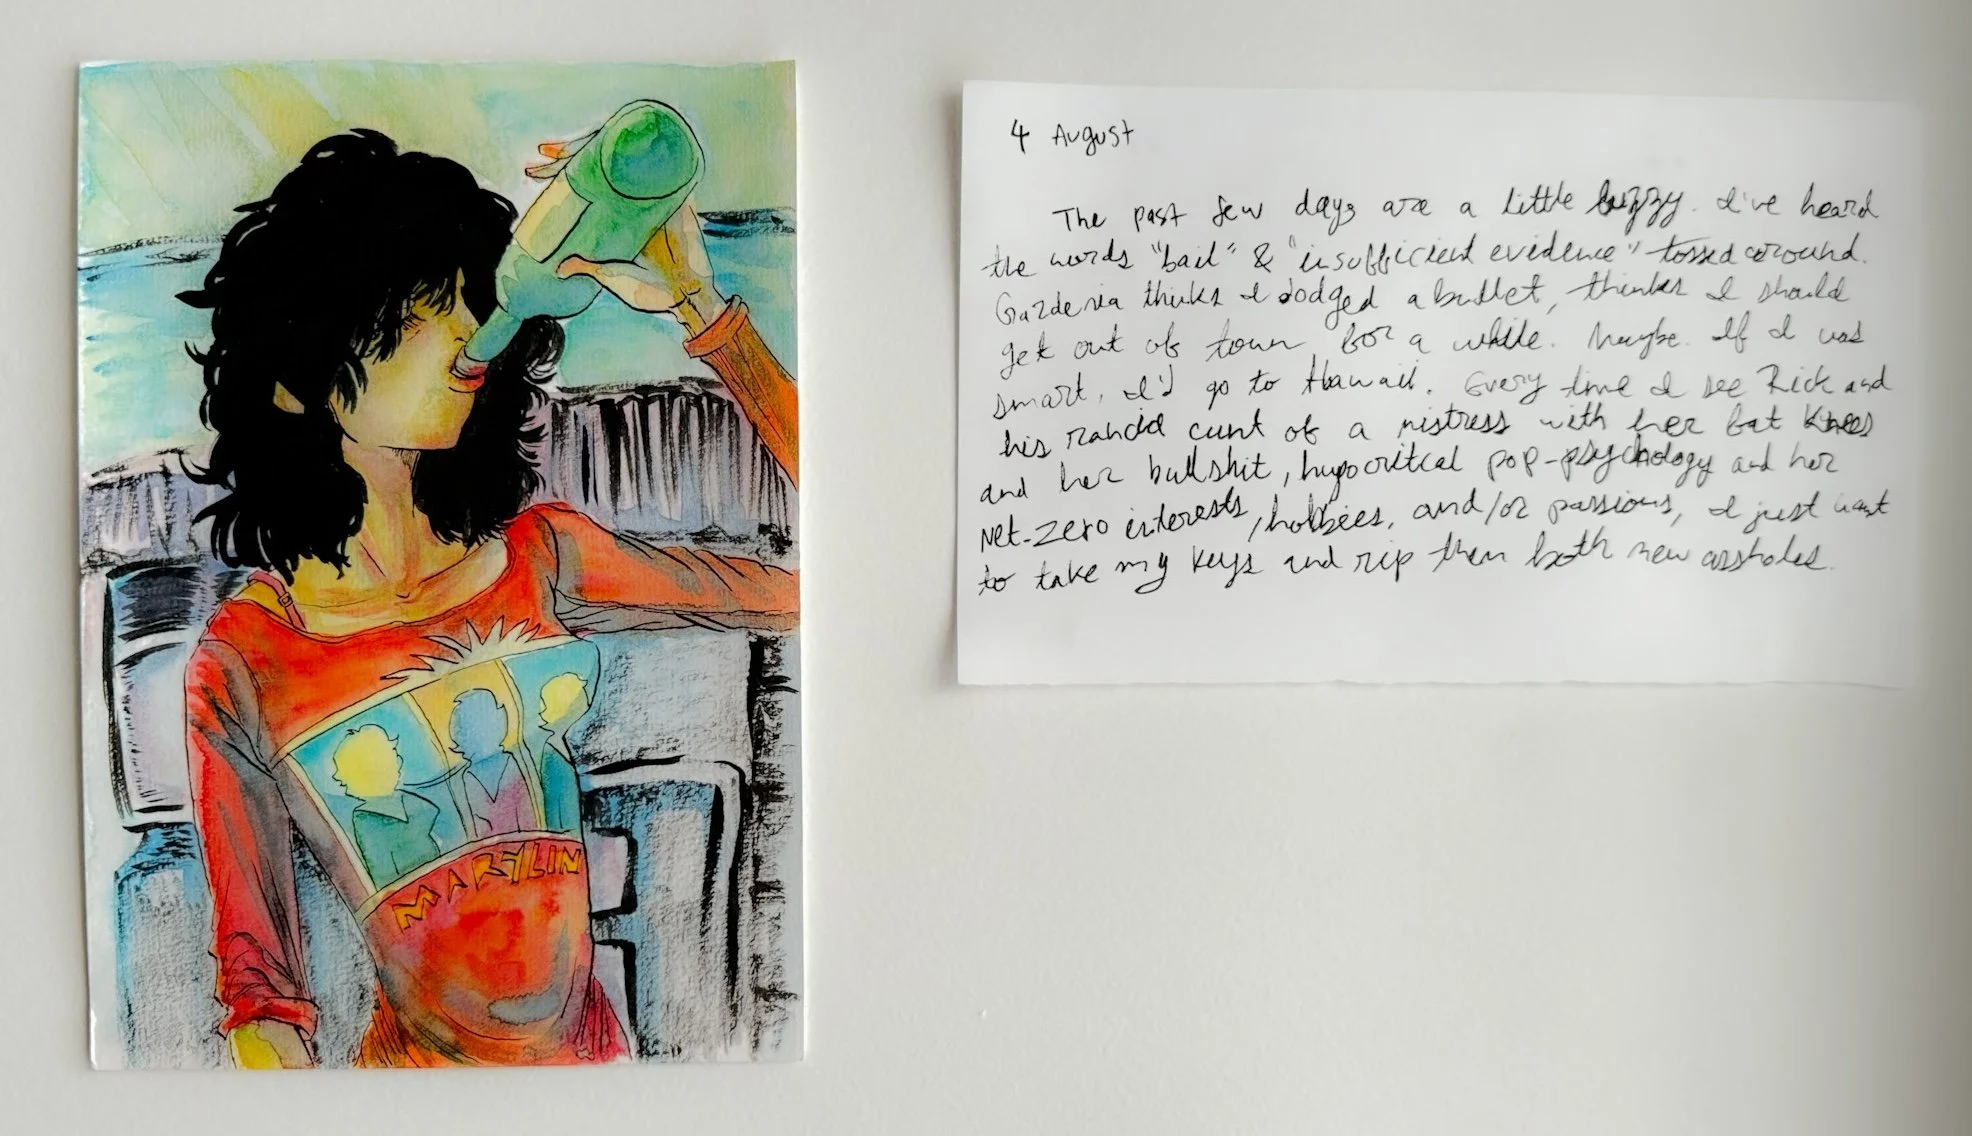 MARYLIN
4 August
The past few days are a little fuzzy. I've heard
the words "bail" & "insufficient evidence" tossed around.
Gardenia thinks I dodged a bullet, thinks I should
get out of town for a while. Maybe. If I was
smart, I'd go to Hawaii. Every time I see Rick and
his rancid cunt of a mistress with her fat knees
and her bullshit, hypocritical pop-psychology and her
net-zero interests, hobbies, and/or passions, I just want
to take my keys and rip them both new assholes.